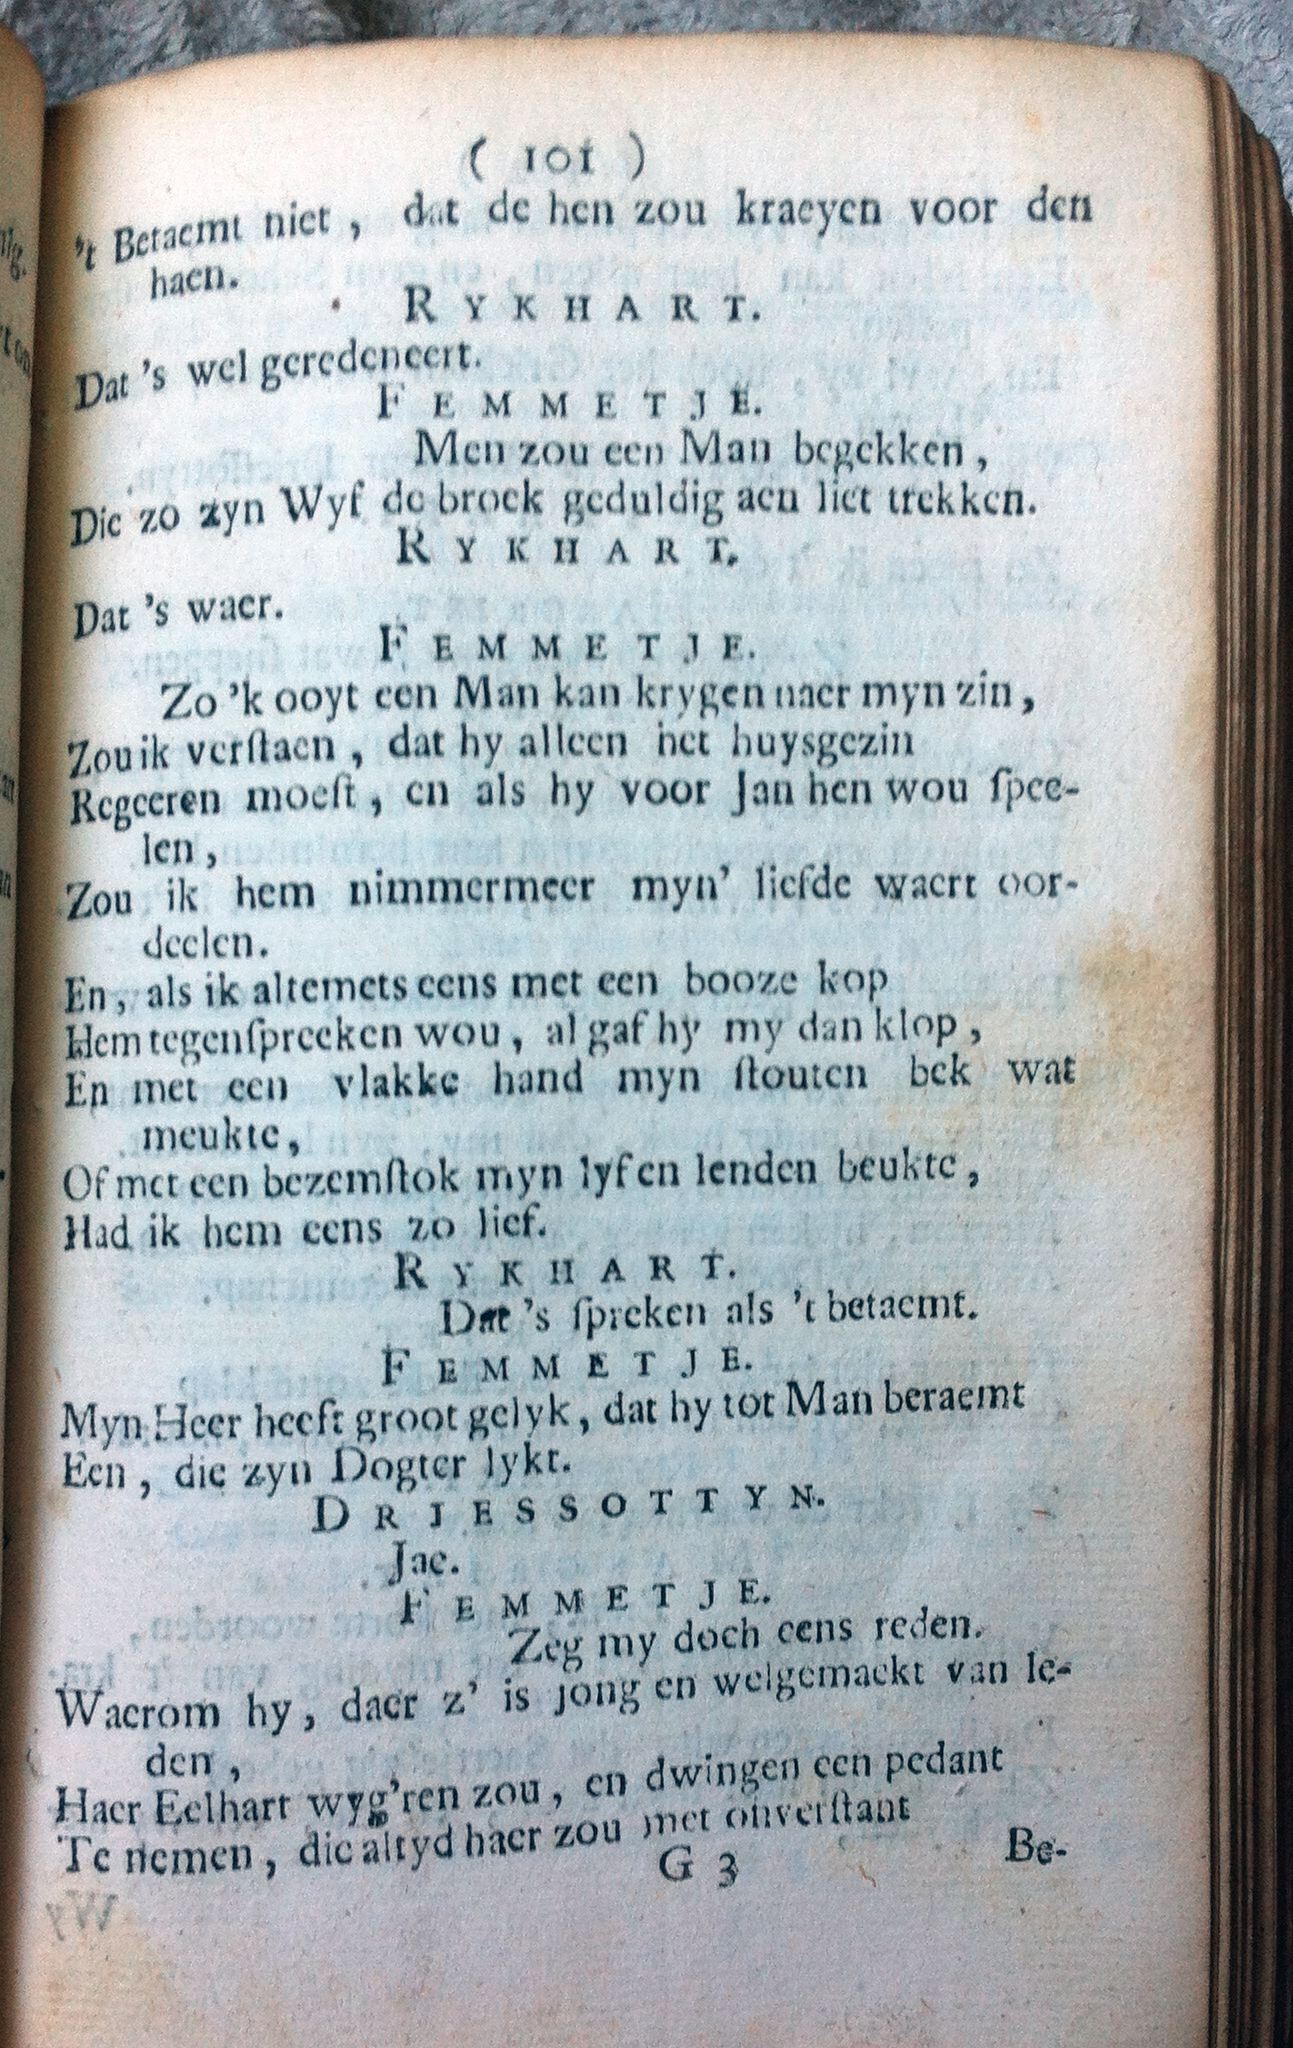 ( 101 )
't Betaemt niet, dat de hen zou kraeyen voor den
haen.
RYKHART.
Dat 's wel geredeneert.
FEMMETJE.
Men zou een Man begekken,
Die zo zyn Wyf de broek geduldig aen liet trekken.
RYKHART.
Dat 's waer.
FEMMETJE.
Zo 'k ooyt een Man kan krygen naer myn zin,
Zou ik verſtaen, dat hy alleen het huysgezin
Regeeren moeſt, en als hy voor Jan hen wou ſpee-
len,
Zou ik hem nimmermeer myn' liefde waert oor-
deelen.
En, als ik altemets eens met een booze kop
Hem tegenſpreeken wou, al gaf hy my dan klop,
En met een vlakke hand myn ſtouten bek wat
meukte,
Of met een bezemſtok myn lyf en lenden beukte,
Had ik hem eens zo lief.
RYKHART.
Dat 's ſpreken als 't betaemt.
FEMMETJE.
Myn Heer heeft groot gelyk, dat hy tot Man beraemt
Een, die zyn Dogter lykt.
DRIESSOTTYN.
Jae.
FEMMETJE.
Zeg my doch eens reden.
Waerom hy, daer z' is jong en welgemaekt van le-
den,
Haer Eelhart wyg'ren zou, en dwingen een pedant
Te nemen, die altyd haer zou met onverſtant
G 3
Be-